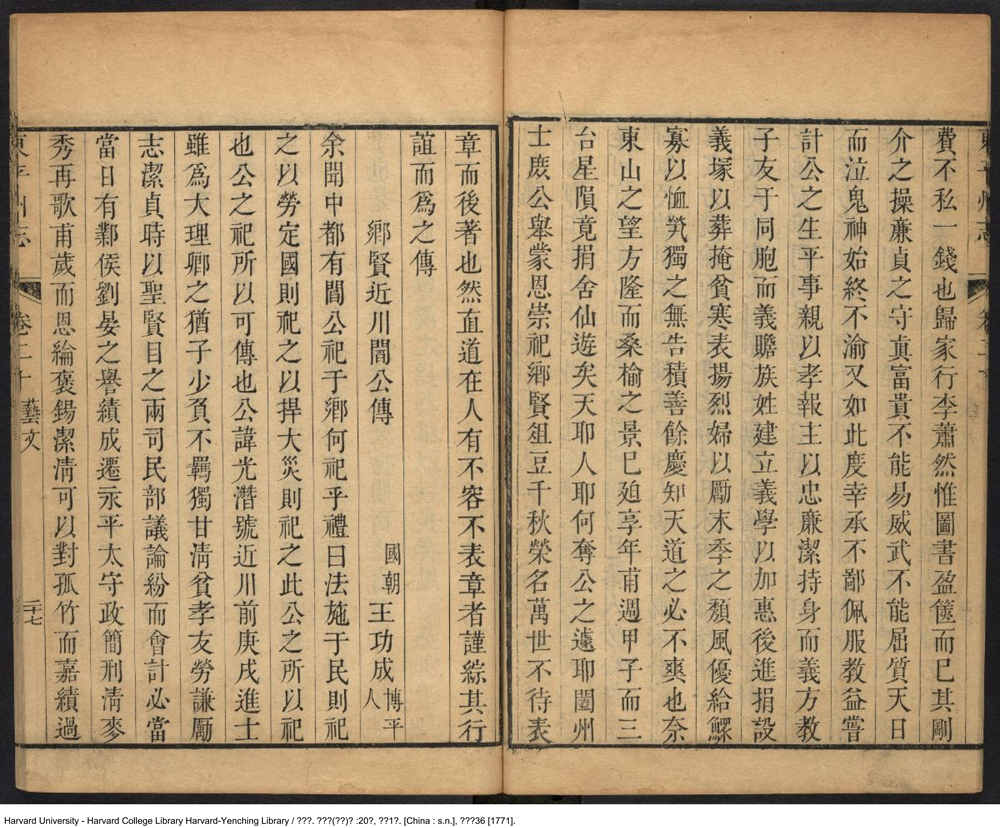 東平州志
卷二十
費不私一錢也歸家行李蕭然惟圖書盈篋而已其剛
介之操亷貞之守真富貴不能易威武不能屈質天日
而泣鬼神始終不渝又如此度幸承不鄙佩服教益嘗
計公之生平事親以孝報主以忠亷潔持身而義方教
子友于同胞而義贍族姓建立義學以加惠後進捐設
義塚以葬掩貧寒表揚烈婦以勵末季之頽風優給鰥
寡以恤煢獨之無告積善餘慶知天道之必不爽也奈
東山之望方隆而桑榆之景已廹享年甫週甲子而三
台星隕竟捐舍仙遊矣天耶人耶何奪公之遽耶闔州
士庶公舉蒙恩崇祀鄉賢俎豆千秋榮名萬世不待表
章而後著也然直道在人有不容不表章者謹綜其行
誼而為之傳
鄉賢近川閻公傳
國朝王功成博平人
余聞中都有閻公祀于鄉何祀乎禮曰法施于民則祀
之以勞定國則祀之以捍大災則祀之此公之所以祀
也公之祀所以可傳也公諱光潛號近川前庚戌進士
雖為大理卿之猶子少負不羈獨甘清貧孝友勞謙勵
志潔貞時以聖賢目之兩司民部議論紛而會計必當
當日有酇侯劉晏之譽績成遷永平太守政簡刑清麥
秀再歌甫歲而恩綸褒錫潔清可以對孤竹而嘉績過
東平州志
卷二十
藝文
二十七
Harvard University - Harvard College Library Harvard-Yenching Library / ???. ???(??)? :20?, ??1?. [China : s.n.], ???36 [1771].